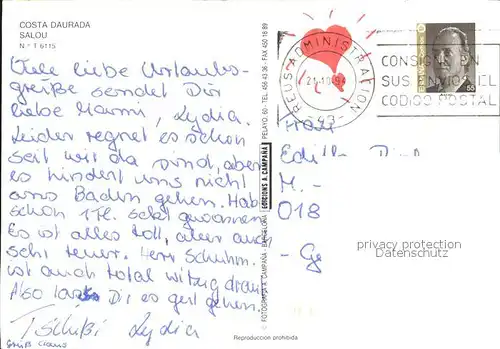 COSTA DAURADA
SALOU
N.º T 6115
Viele liebe Urlaubs-
grüße sendet Dir
liebe Mammi, Lydia.
Leider regnet es schon
seit wir da sind, aber
es hindert uns nicht
ans Baden gehen. Hab
schon 1 Fl. Sekt gewonnen
Es ist alles toll, aber auch
sehr teuer. Herr Schuhm.
ist auch total witzig drauf
Also lass Dir es gut gehen.
Tschüßi Lydia
EDICIONS A. CAMPAÑA
PELAYO, 60 - TEL. 456 43 36 - FAX 450 18 89
© FOTOGRAFIA A. CAMPAÑA - BARCELONA
Reproducción prohibida
REUS-ADMINISTRATION
21-10-94
-943-
CONSIGNE EN
SUS ENVIOS EL
CODIGO POSTAL
55
Frau
Edith
M.-
018
- Ge
privacy protection
Datenschutz